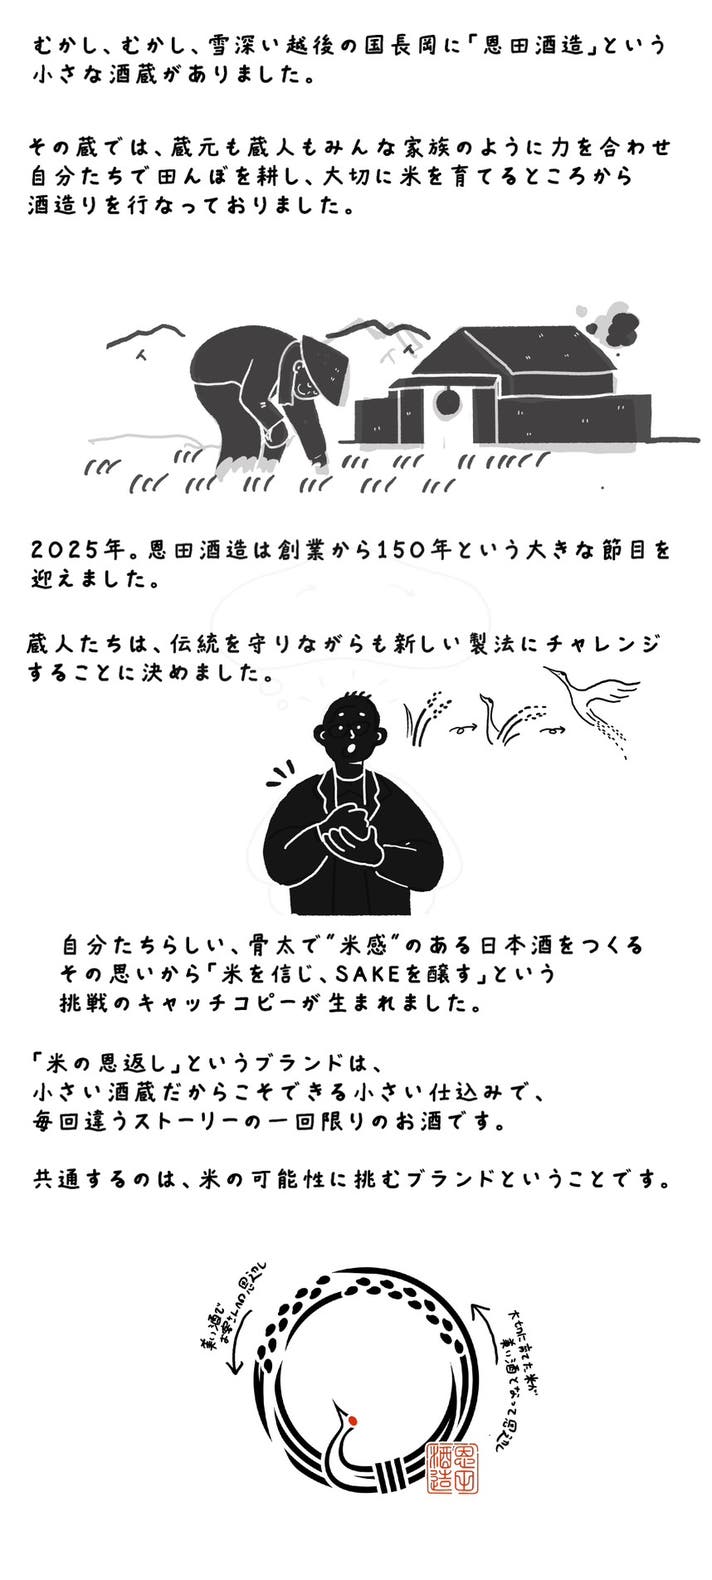 むかし、むかし、雪深い越後の国長岡に「恩田酒造」という
小さな酒蔵がありました。
その蔵では、蔵元も蔵人もみんな家族のように力を合わせ
自分たちで田んぼを耕し、大切に米を育てるところから
酒造りを行なっておりました。
2025年。恩田酒造は創業から150年という大きな節目を
迎えました。
蔵人たちは、伝統を守りながらも新しい製法にチャレンジ
することに決めました。
自分たちらしい、骨太で"米感"のある日本酒をつくる
その思いから「米を信じ、SAKEを醸す」という
挑戦のキャッチコピーが生まれました。
「米の恩返し」というブランドは、
小さい酒蔵だからこそできる小さい仕込みで、
毎回違うストーリーの一回限りのお酒です。
共通するのは、米の可能性に挑むブランドということです。
美い酒で
お客さんへの恩返し
大切に育てた米が
美い酒となって恩返し
恩田
酒造